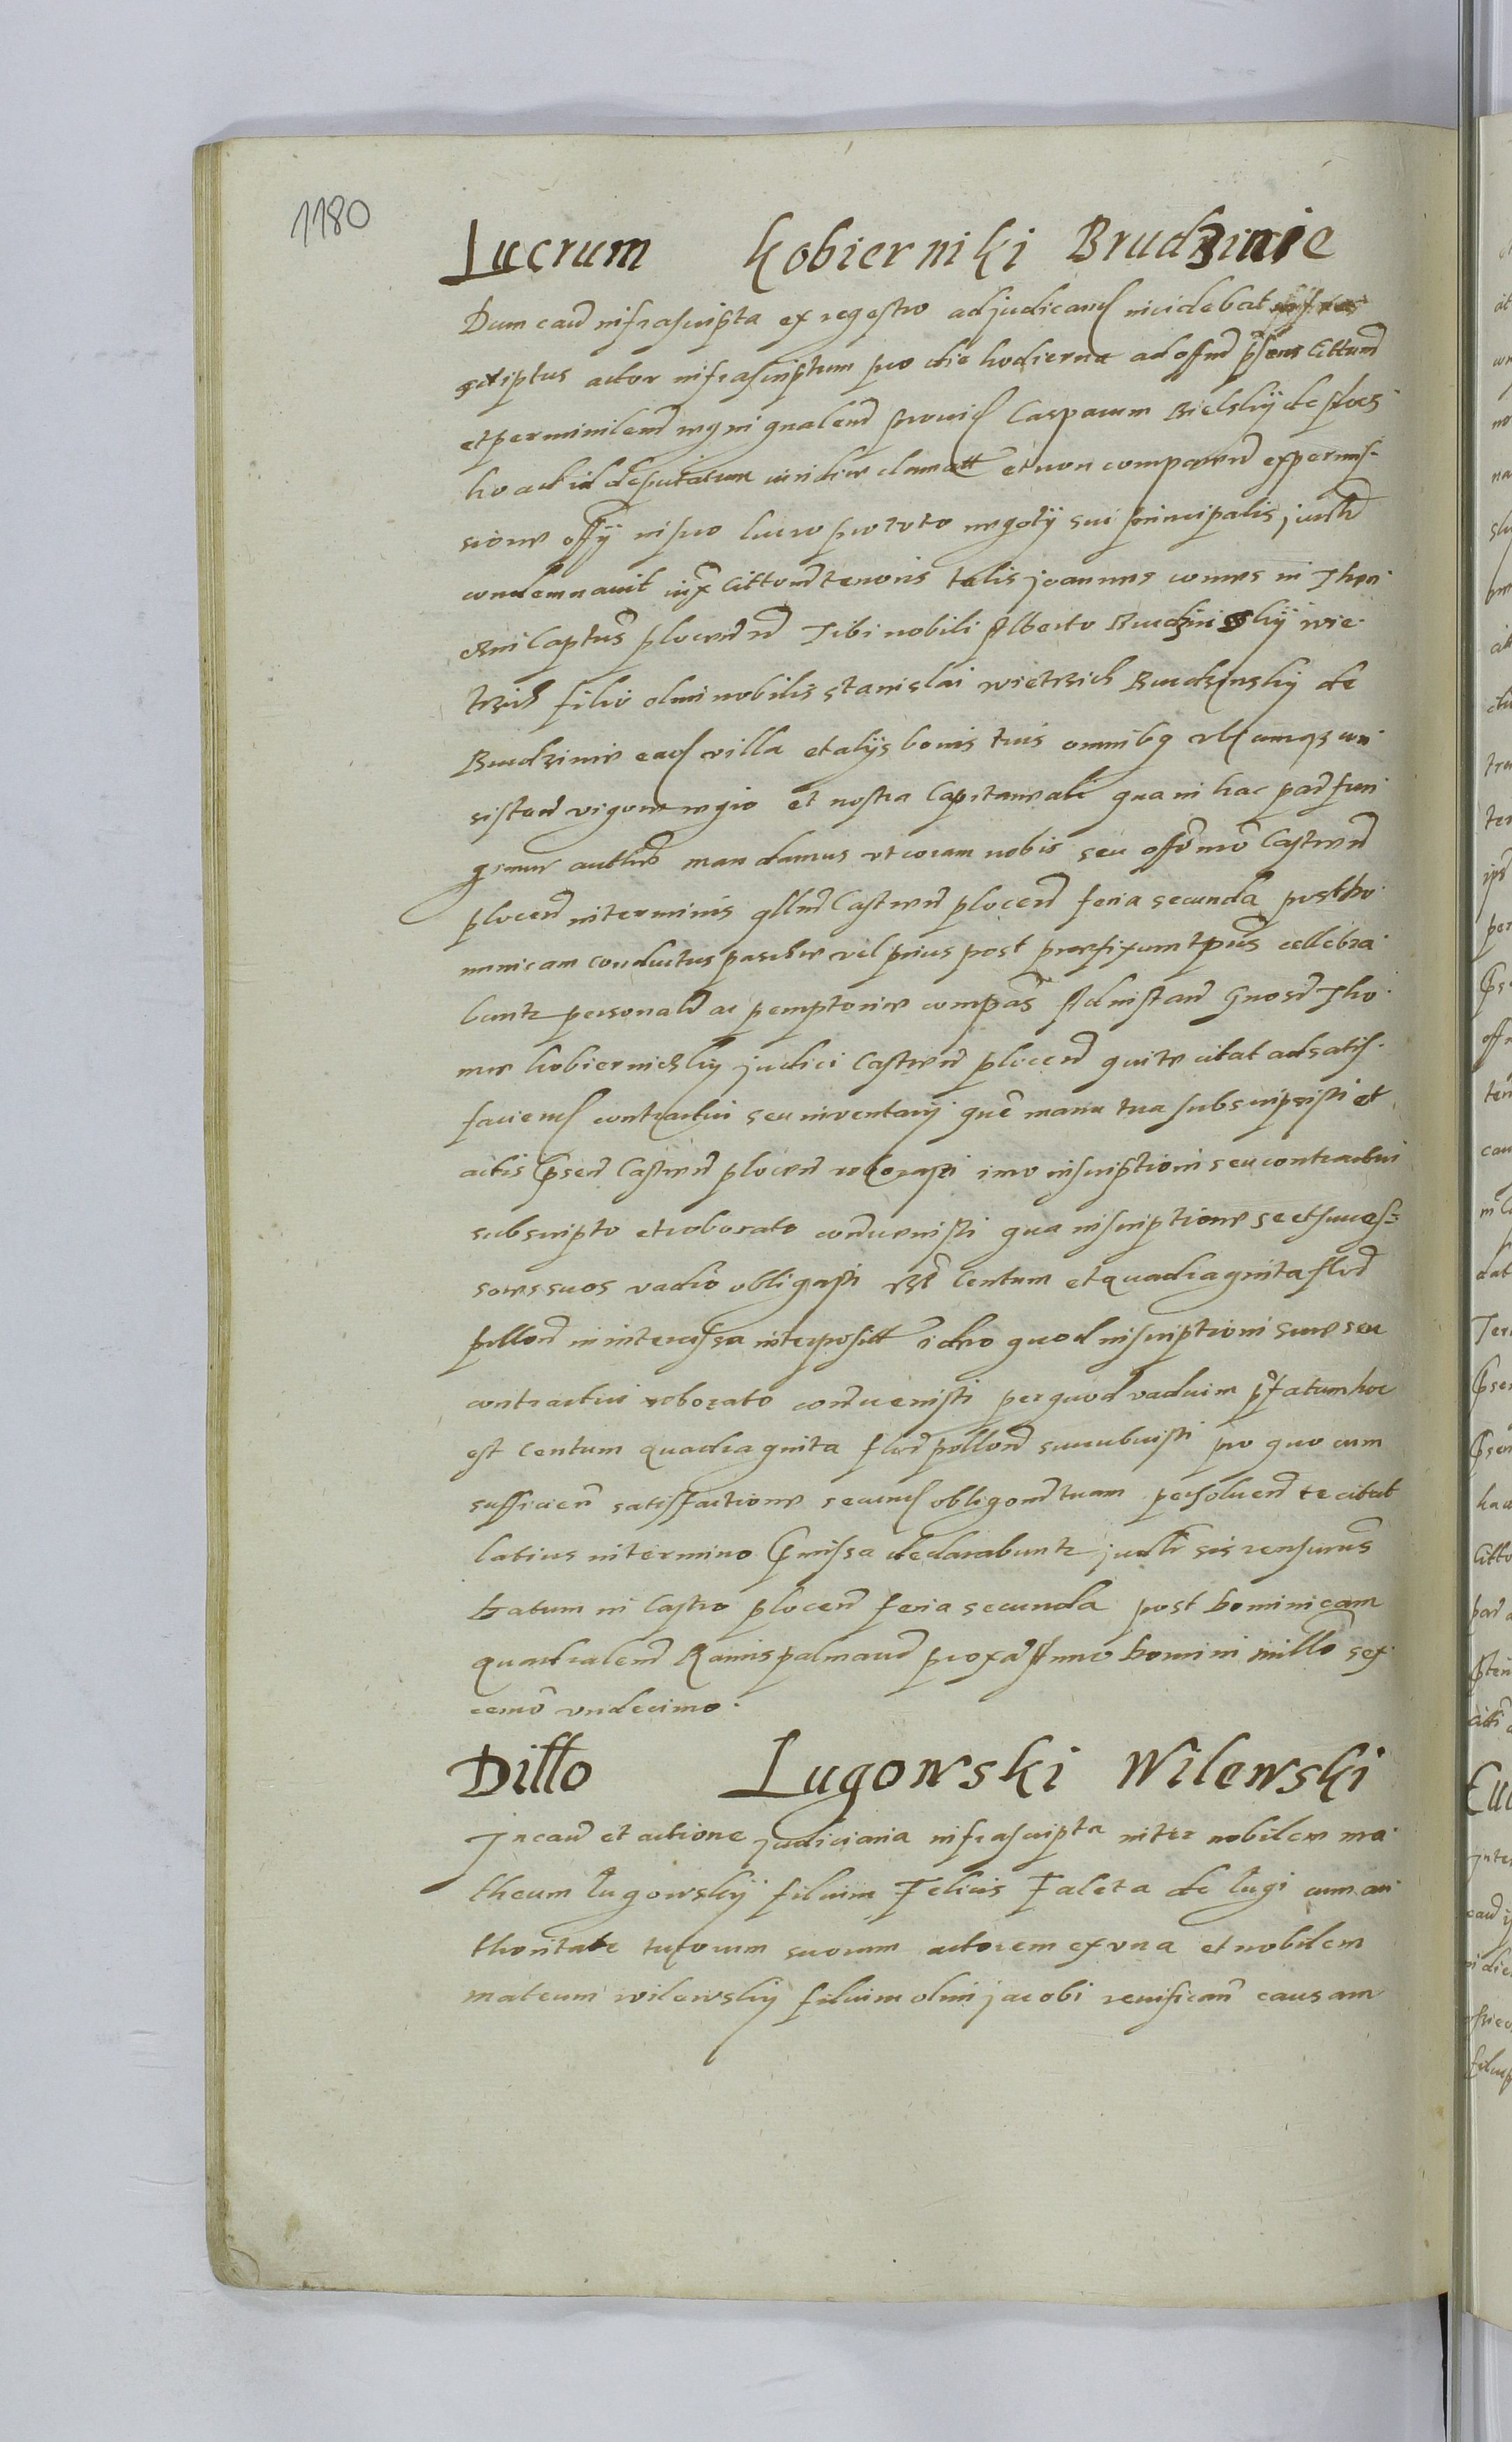 1180
Lucrum Kobierniki Brudzinie
Dum caũ infrascripta ex regestro adjudicand incidebat
scriptus actor infrascriptum pro die hodierna ad offũ pñs Cittum
et per ministeriũ Casparum Bielskij de Ploc
ho ad id deputatum iuridice clamatt et non comparen ex permis-
sione offij in suo lucro pro toto negotij sui principalis judtr
condemnavit iux Citton tenoris talis joannes comes in Then
czin Captus plocen Tibi nobili Alberto Brudzinskij wie
trzich filio olim nobilis stanislai wietrzich Brudzinskij de
Brudzinie ead villa et alijs bonis tuis omnibq ubcumqz con
sisten vigore regio et nostra Capitaneali qua in hac par fun
gimur authte mandamus vt coram nobis seu offo nro Castren
plocen in terminis qllũ Castren plocen feria secunda post do
minicam conductus paschae vel prius post praefixum tpus cellebra
buntr personalr ac pemptorie compas Ad instan Gnosi Tho
mae kobiernickij judici Castren plocen qui te citat ad satis
faciend contractui seu inventarij que manu tua subscripsisti et
actis psen Castren plocen roborasti imo inscriptioni seu contractui
subscripto et roborato contrvenisti qua inscriptione se et succes=
sores suos vadio obligasti centum et quadraginta flor
pollon in interessa interpositt ideo quod inscriptioni suae seu
contractui roborato contrvenisti per quod vadium pfatum hoc
est centum quadraginta flor pollon succubuisti pro quo cum
sufficien satisfactione secund obligon tuam persoluen te citat
latius in termino pmissa declarabuntr judtr sis rensurus
Datum in Castro plocen feria secunda post Dominicam
quadralem Ramispalmarũ proxa Anno Domini millo sex
cemo vndecimo.
Ditto Lugowski Wilewski
In caũ et actione judiciaria infrascripta inter nobilem ma
theum Lugowskij filium Felicis Faleta de lugi cum au
thoritate tutorum suorum actorem ex vna et nobilem
mateum wilewskij filium olim jacobi reuisican causam